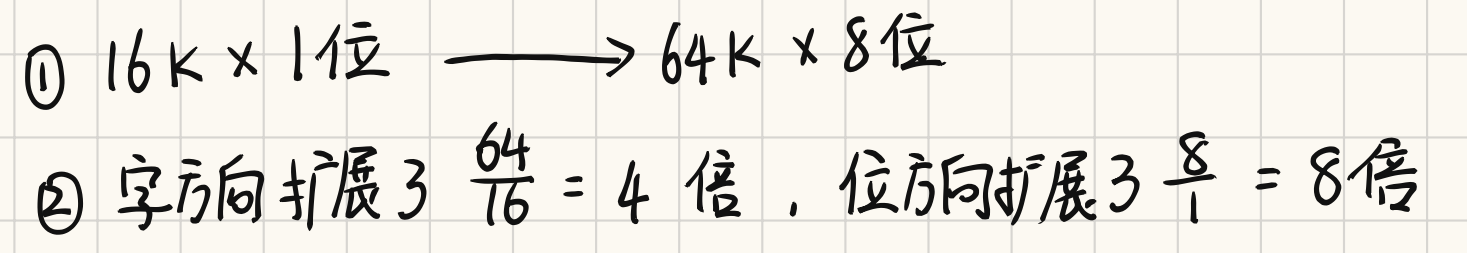 ① 16K × 1位 → 64K × 8位
② 字方向扩展了 64/16 = 4 倍，位方向扩展了 8/1 = 8倍